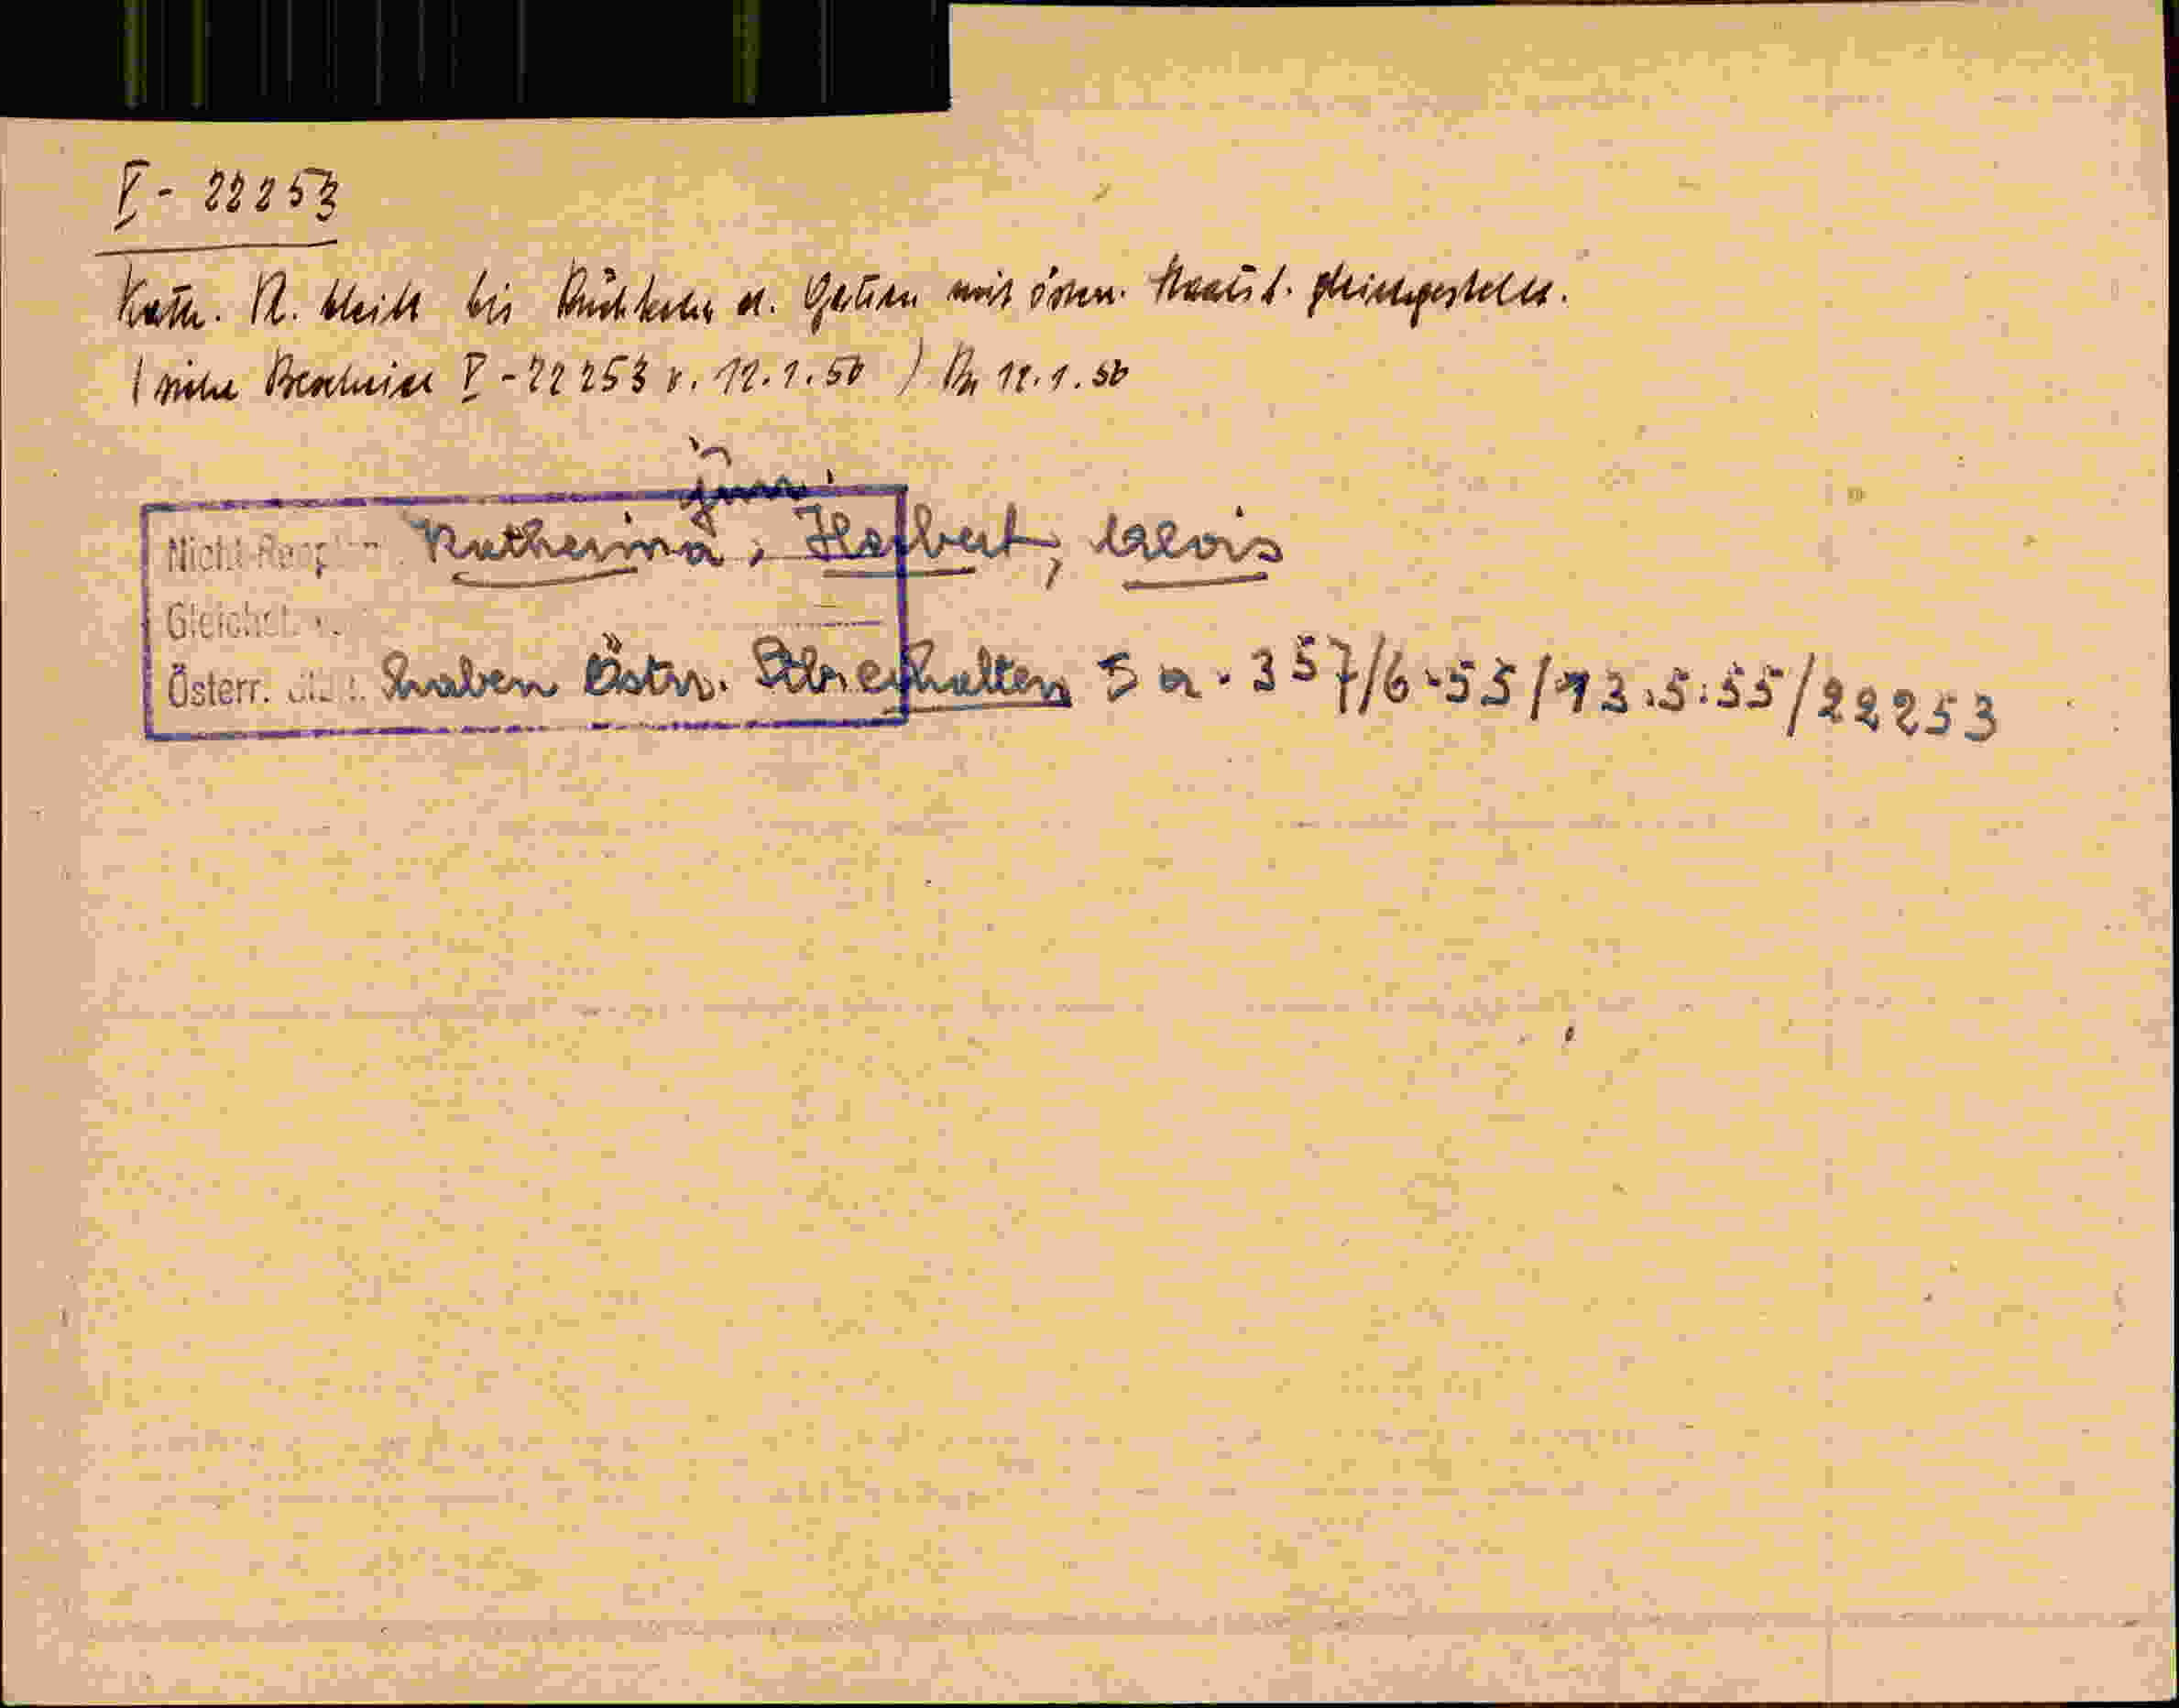 V - 22253
Kath. R. bleibt bis Rückkehr d. Gatten mit österr. Staatsb. gleichgestellt.
(siehe Bescheid V - 22253 v. 12.1.50) 12.1.50
jun.
Nicht-Reop Katherina, Herbert, Alois
Gleichst.
Österr. haben Östr. Stb. erhalten 5 a - 357/6-55/13.5.55/22253